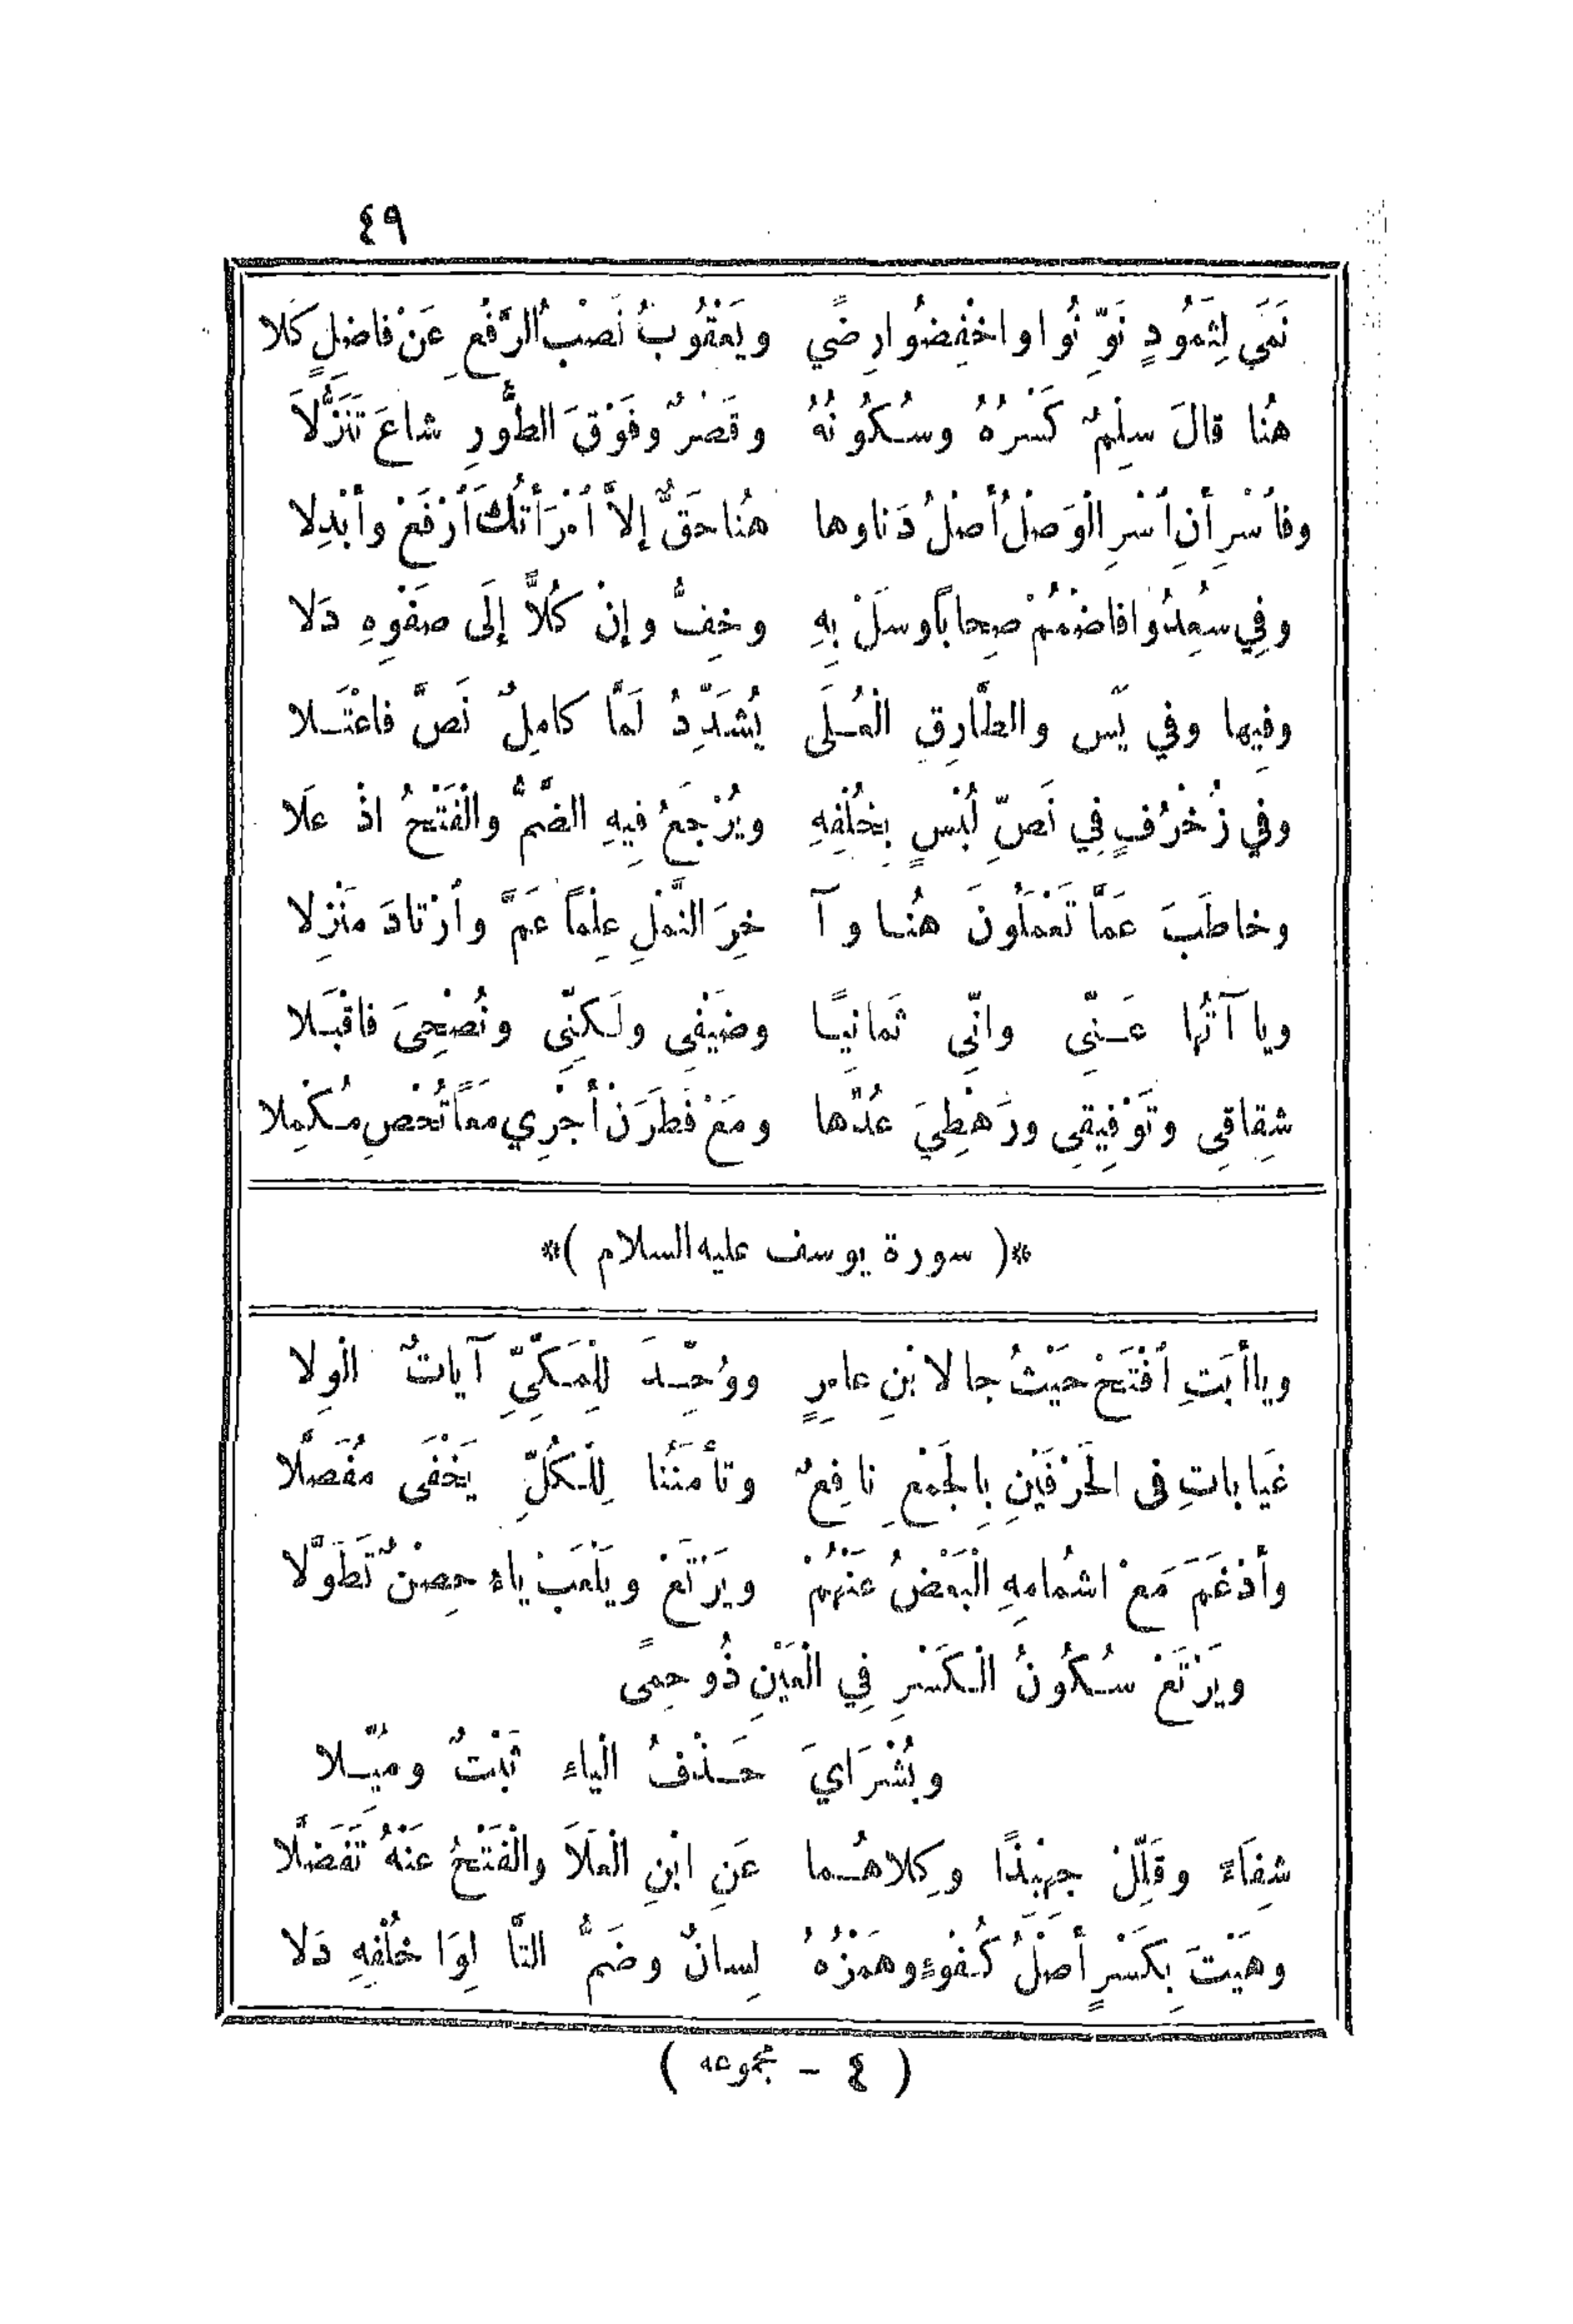 ٤٩
نَمَى لِثَمُودٍ نَوِّنُوا واخْفِضُوا رِضًي ويَعْقُوبُ نَصْبُ الرَّفْعِ عَنْ فاضِلٍ كَلا
هُنا قالَ سِلْمٌ كَسْرُهُ وسُكُونُهُ وقَصْرٌ وفَوْقَ الطُّورِ شاعَ تَنَزُّلاَ
وفأَسْرِ أنِ أسْرِ الْوَصْلُ أصْلٌ دَنا وها هُنا حَقٌّ إلاَّ أمْرَأتُكَ أرْفَعْ وأبْدِلا
وفِي سُعِدُوا فاضْمُمْ صِحاباً وسَلْ بِهِ وخِفُّ وإنْ كُلاًّ إلَى صَفْوِهِ دَلا
وفِيها وفي يَس والطَّارِقِ الْعُـلَى يُشَدِّدُ لَمَّا كامِلٌ نَصَّ فاعْتَـلا
وفي زُخْرُفٍ فِي نَصِّ لُسْنٍ بِخُلْفِهِ ويُرْجَعُ فِيهِ الضَّمُّ والْفَتْحُ اذْ عَلا
وخاطَبَ عَمَّا تَعْمَلُونَ هُنـا وآ خِرَ النَّمْلِ عِلْماً عَمَّ وأرْتادَ مَنْزِلا
ويا آتُها عَـنِّى وانِّي ثَمانِيًـا وضَيْفِي ولَـكِنِّى ونُصْحِىَ فاقْبَـلا
شِقاقِي وتَوْفِيقِي ورَهْطِيَ عُدَّها ومَعْ فَطَرَنْ أجْرِي مَعاً تُحْصِ مُـكْمِلا
*( سورة يوسف عليه السلام )*
ويا أبَتِ أفْتَحْ حَيْثُ جا لابْنِ عامِرٍ ووُحِّـدَ لِلْمَـكِّيِّ آياتٌ الْوِلا
غَيَاباتِ فى الحَرْفَيْنِ بِالجَمْعِ نافِعٌ وتأمَنُنا لِلْـكُلِّ يَخْفَى مُفَصَّلا
وأدْغَمَ مَعْ اشْمامِهِ الْبَعْضُ عَنْهُمْ ويَرْتَعْ ويَلْعَبْ ياءُ حِصْنٌ تَطَوَّلا
ويَرْتَعْ سُـكُونُ الْـكَسْرِ فِي الْعَيْنِ ذُو حِمًى
وبُشْرَايَ حَـذْفُ الْياءِ ثَبْتٌ ومُيِّـلا
شِفَاءً وقَلِّلْ جِهْبِذًا وكِلاهُـما عَنِ ابْنِ الْعَلَاَ والْفَتْحُ عَنْهُ تَفَضَّلا
وهَيْتَ بِكَسْرٍ أصْلُ كُـفْوءٍ وهَمْزُهُ لِسانٌ وضَمُّ التَّا لِوَا خُلْفِهِ دَلا
( ٤ - مجموعه )